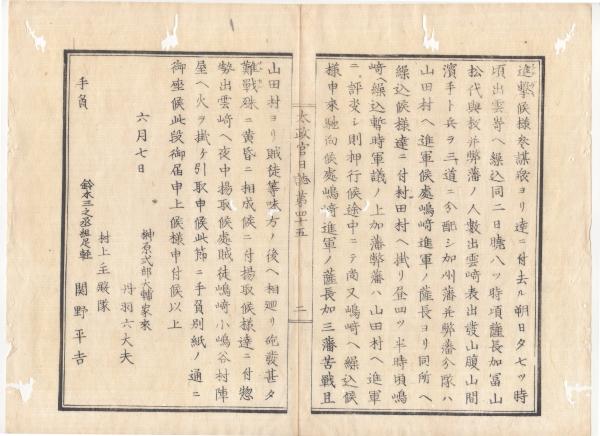 進撃候様参謀殿ヨリ達ニ付去ル朔日夕七ツ時
頃出雲崎ヘ繰込同二日暁八ツ時頃薩長加富山
松代與板并弊藩ノ人数出雲崎表出發山腹山間
濱手ト兵ヲ三道ニ分配シ加州藩并弊藩分隊ハ
山田村ヘ進軍候處嶋﨑進軍ノ薩長ヨリ同所ヘ
繰込候様達ニ付村田村ヘ掛リ昼四ツ半時頃嶋
﨑ヘ繰込暫時軍議ノ上加藩弊藩ハ山田村ヘ進軍
ニ評决シ則押行候途中ニテ尚又嶋﨑ヘ繰込候
様申来馳向候處嶋﨑進軍ノ薩長加三藩苦戰且
太政官日誌第四十五
二
山田村ヨリ賊徒等味方ノ後ヘ相廻リ砲發甚タ
難戰殊ニ黄昏ニ相成候ニ付揚取候様達ニ付惣
勢出雲﨑ヘ夜中揚取候處賊徒嶋﨑小嶋谷村陣
屋ヘ火ヲ掛ケ引取申候此節ニ手負別紙ノ通ニ
御座候此段御届申上候様申付候以上
六月七日
榊原式部大輔家来
丹羽六大夫
手負
村上主殿隊
鈴木三之丞組足軽
関野平吉